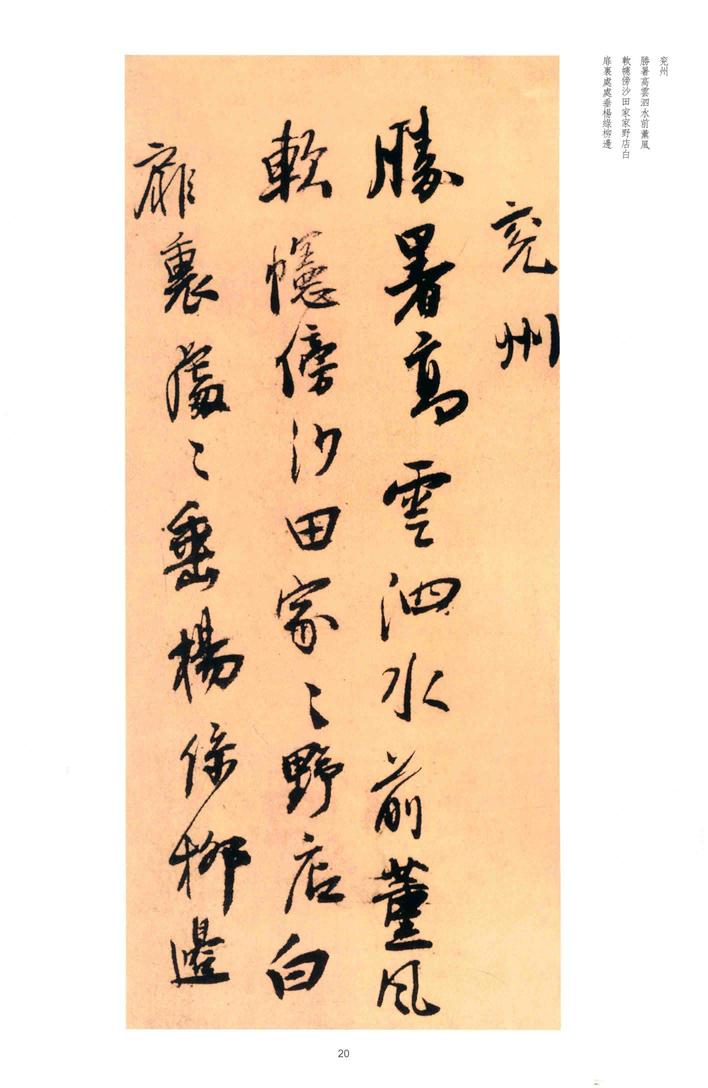 兖州
勝暑高雲泗水前薰風
軟幰傍沙田家家野店白
扉裏處處垂楊綠柳邊
兖州
勝暑高雲泗水前薰風
軟幰傍沙田家〻野店白
扉裏處〻垂楊綠柳邊
20